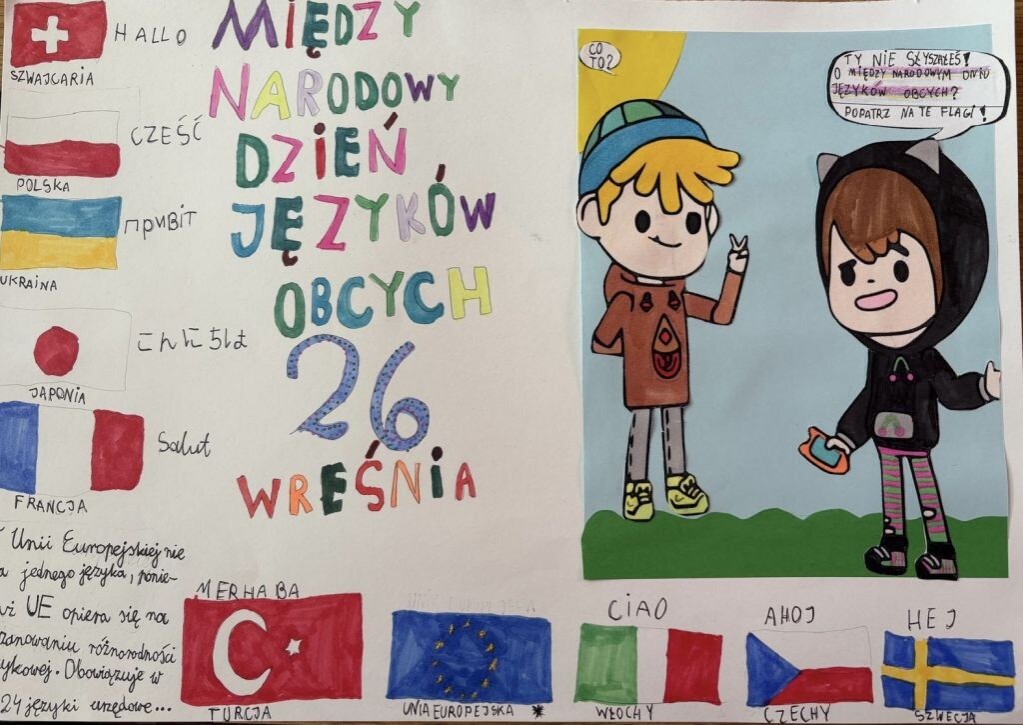 HALLO
SZWAJCARIA
CZEŚĆ
POLSKA
привіт
UKRAINA
こんにちは
JAPONIA
Salut
FRANCJA
MIĘDZY
NARODOWY
DZIEŃ
JĘZYKÓW
OBCYCH
26
WREŚNIA
CO
TO?
TY NIE SŁYSZAŁEŚ!
O MIĘDZY NARODOWYM DNIU
JĘZYKÓW OBCYCH?
POPATRZ NA TE FLAGI!
Unii Europejskiej nie
jednego języka, ponie-
waż UE opiera się na
szanowaniu różnorodności
językowej. Obowiązuje w
24 języki urzędowe...
MERHABA
TURCJA
UNIA EUROPEJSKA *
CIAO
WŁOCHY
AHOJ
CZECHY
HEJ
SZWECJA